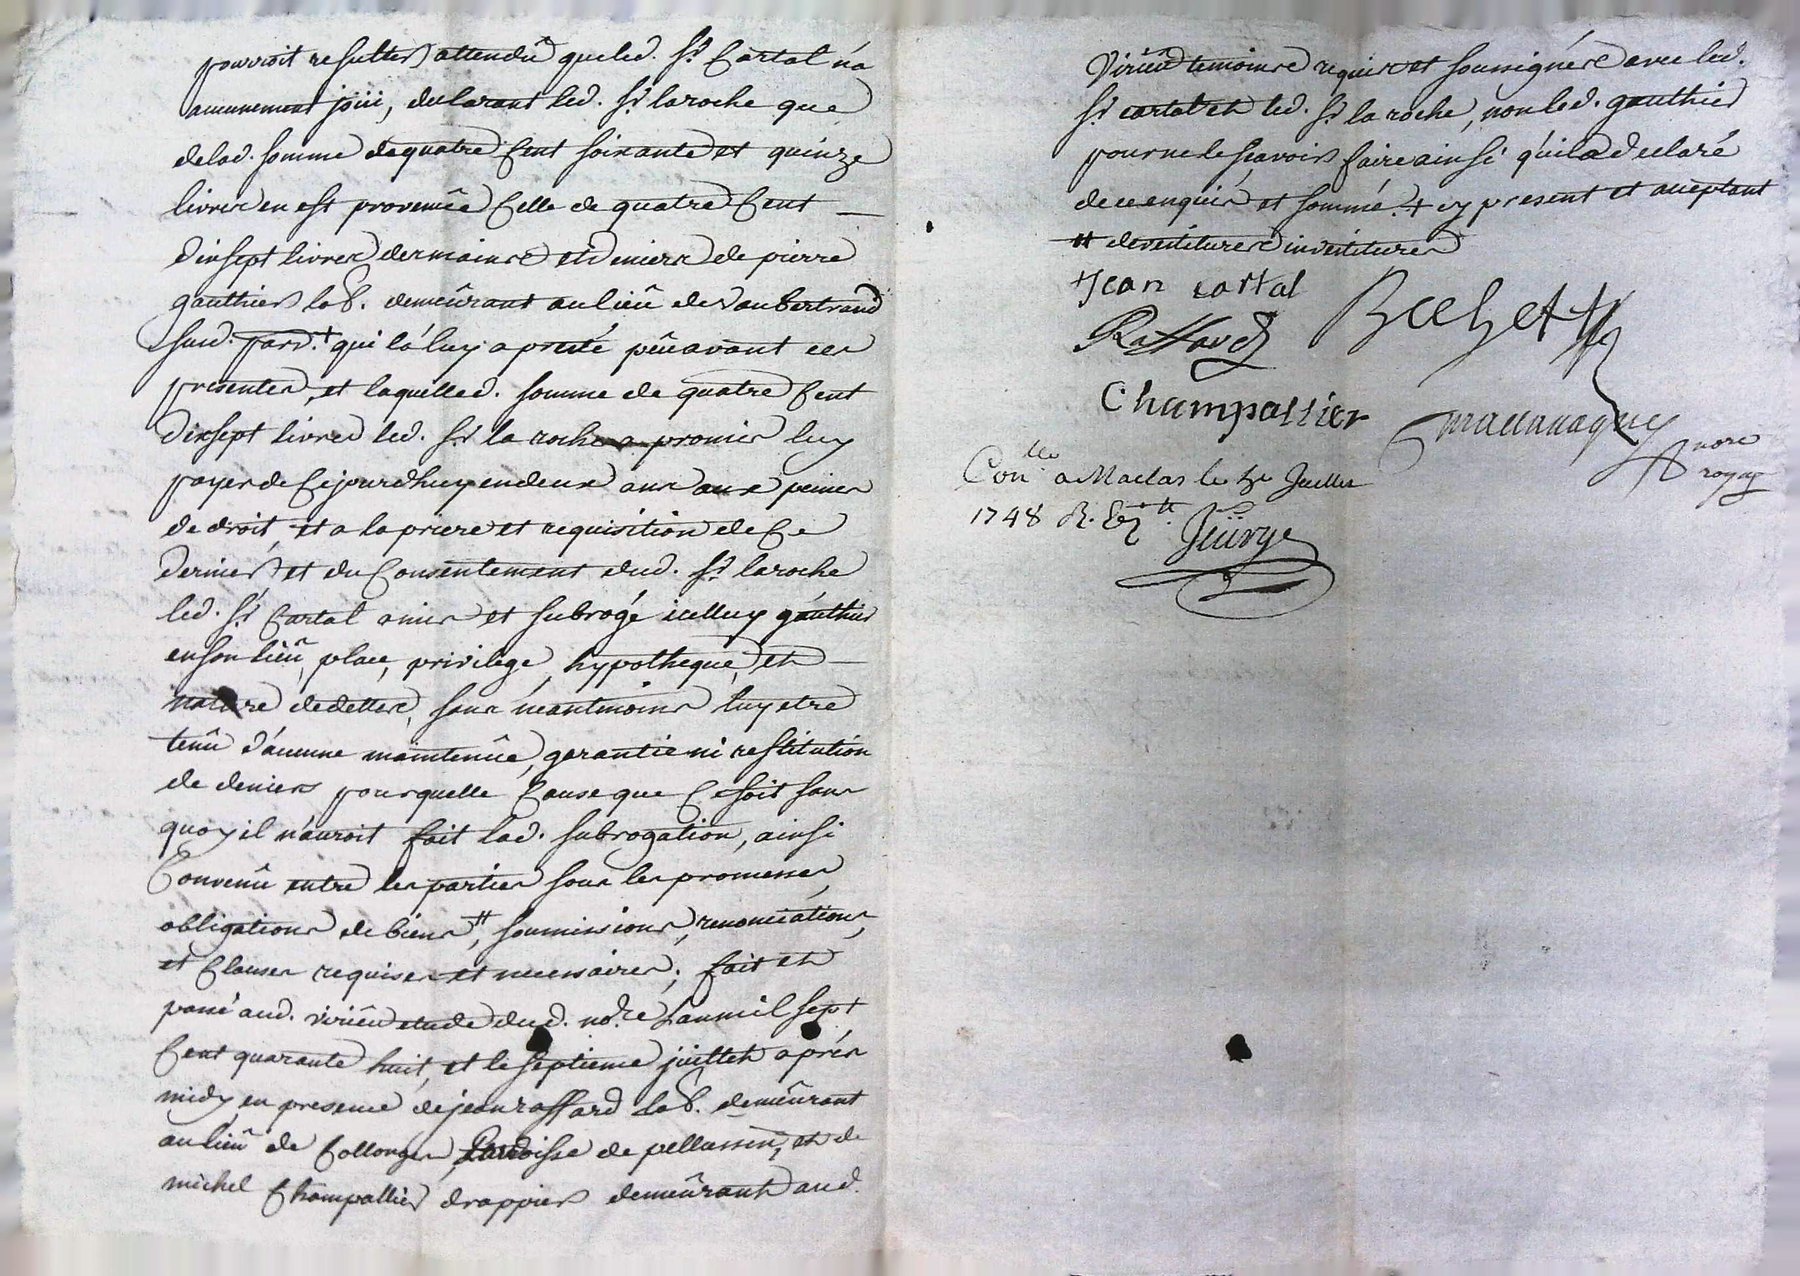 pourroit resulter attendû que led. Sr. Cartal n'a
aucunement joüi, declarant led. Sr. laroche que
de lad. somme de quatre Cent soixante et quinze
livres en est provenûe Celle de quatre Cent
dixsept livres des mains et deniers de pierre
gauthier lab. demeûrant au lieû de vaubertrand
susd. parr. + qui la luy a preté peû avant ces
presentes, et laquelle d. somme de quatre Cent
dixsept livres led. Sr. la roche a promis luy
payer de Cejourdhuy en deux ans aux peines
de droit, et a la priere et requisition de Ce
dernier et du Consentement dud. Sr. laroche
led. Sr. Cartal a mis et subrogé icelluy gauthier
en son lieû, place, privilege, hypotheque, et
nature de dettes, sans neantmoins luy etre
tenû d'aucune maintenûe, garantie ni restitution
de deniers pour quelle Cause que Ce soit sans
quoy il n'auroit fait lad. subrogation, ainsi
Convenû entre les parties sous les promesses,
obligations de biens #, soumissions, renonciations,
et Clauses requises et necessaires; fait et
passé aud. virieû etude dud. nore. L'an mil sept
Cent quarante huit, et le septieme juillet après
midy en presence de jean raffard lab. demeûrant
au lieû de Collonges, Parroisse de pellussin, et de
michel Champallier drappier demeûrant aud.
Virieû temoins requis et soussignés avec led.
Sr. cartal et led. Sr. la roche, non led. gauthier
pour ne le sçavoir faire ainsi qu'il a declaré
de ce enquis et sommé. + cy present et acceptant
# devetitures investitures
+ Jean cartal
Raffard
Champallier
nore
royal
Conlle. a Maclas le Juillet
1748 R.